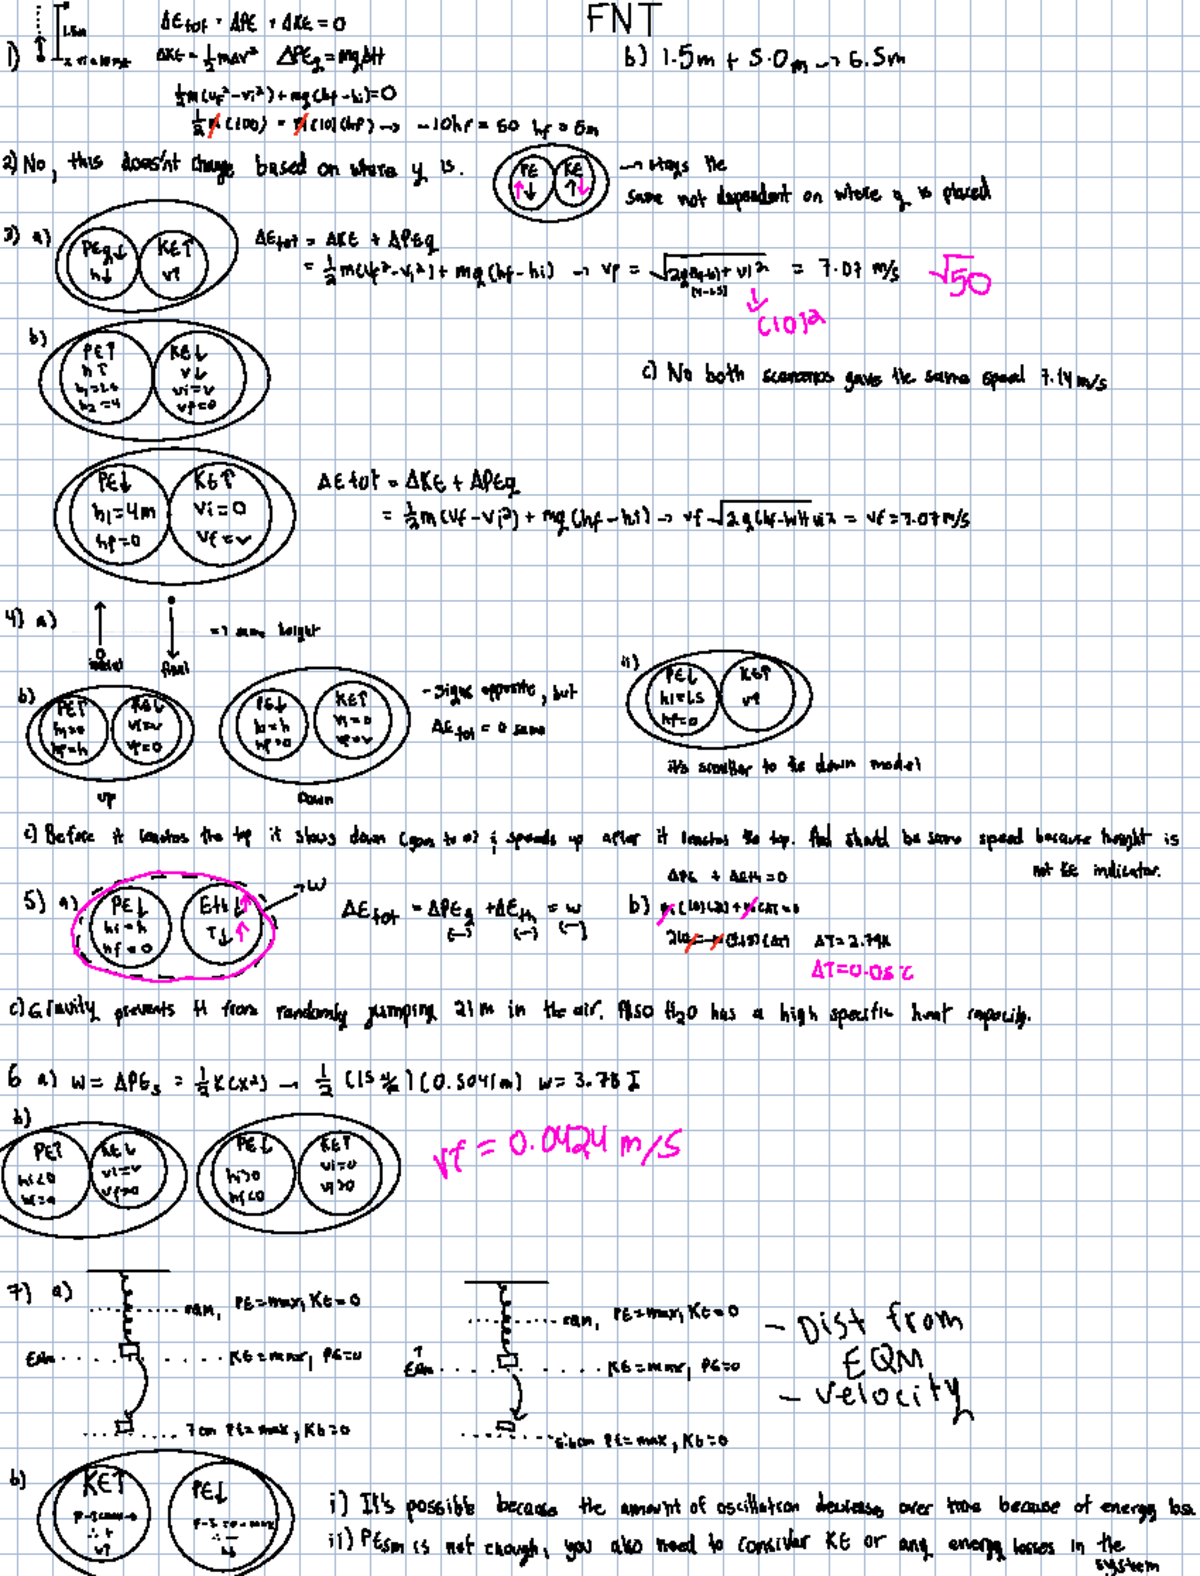 FNT
1) 1.5m
ΔEtot = ΔPE + ΔKE = 0
ΔKE = ½mΔv² ΔPEg = mgΔH
½m(vf² - vi²) + mg(hf - hi) = 0
½m(100) = m(10)(hf) → -10hf = 50 hf = 5m
b) 1.5m + 5.0m → 6.5m
2) No, this does'nt change based on where y is.
PE ↑↓ KE ↑↓ → stays the
same not dependent on where y is placed
3) a) PEg↓ h↓ KE↑ v↑
ΔEtot = ΔKE + ΔPEg
= ½m(vf² - vi²) + mg(hf - hi) → vf = = 7.07 m/s √50
(10)²
b) PE↑ h↑ h2=4
KE↓ v↓ vi=v vf=0
c) No both scenarios gave the same speed 7.14 m/s
PE↓ h1=4m hf=0
KE↑ vi=0 vf=v
ΔEtot = ΔKE + ΔPEg
= ½m(vf - vi²) + mg(hf - hi) → vf = vf = 7.07 m/s
4) a) initial final => same height
b) PE↑ hf=h KE↓ vi=v vf=0
up
PE↓ hi=h hf=0 KE↑ vi=0 vf=v
Down
- signs opposite, but
ΔEtot = 0 same
ii) PE↓ hi=1.5 hf=0 KE↑ v↑
it's similar to the down model
c) Before it reaches the top it slows down (goes to 0) & speeds up after it reaches the top. And should be same speed because height is
not KE indicator.
5) a) PE↓ hi=h hf=0 Eth↓↑ T↓↑ → W
ΔEtot = ΔPEg + ΔEth = W
(-) (-) (-)
b) ΔPE + ΔEth = 0
ΔT = 2.79K
ΔT=0.05°C
c) Gravity prevents it from randomly jumping 21m in the air. Also H₂O has a high specific heat capacity.
6 a) W = ΔPEs = ½K(x²) → ½ (15 ) (0.5041m) W = 3.78 J
b) PE↑ hi<0 KE↓ vi=v vf=0
PE↓ hi>0 hf<0 KE↑ vi=0 vf>0
vf = 0.0424 m/s
7) a) PE=max, KE=0
KE=max, PE=0
7cm PE=max, KE=0
PE=max, KE=0
KE=max, PE=0
PE=max, KE=0
- Dist from
EQM
- velocity
b) KE↑ v↑ PE↓
i) It's possible because the amount of oscillation decreases over time because of energy loss
ii) PEsm is not enough, you also need to consider KE or any energy losses in the
system